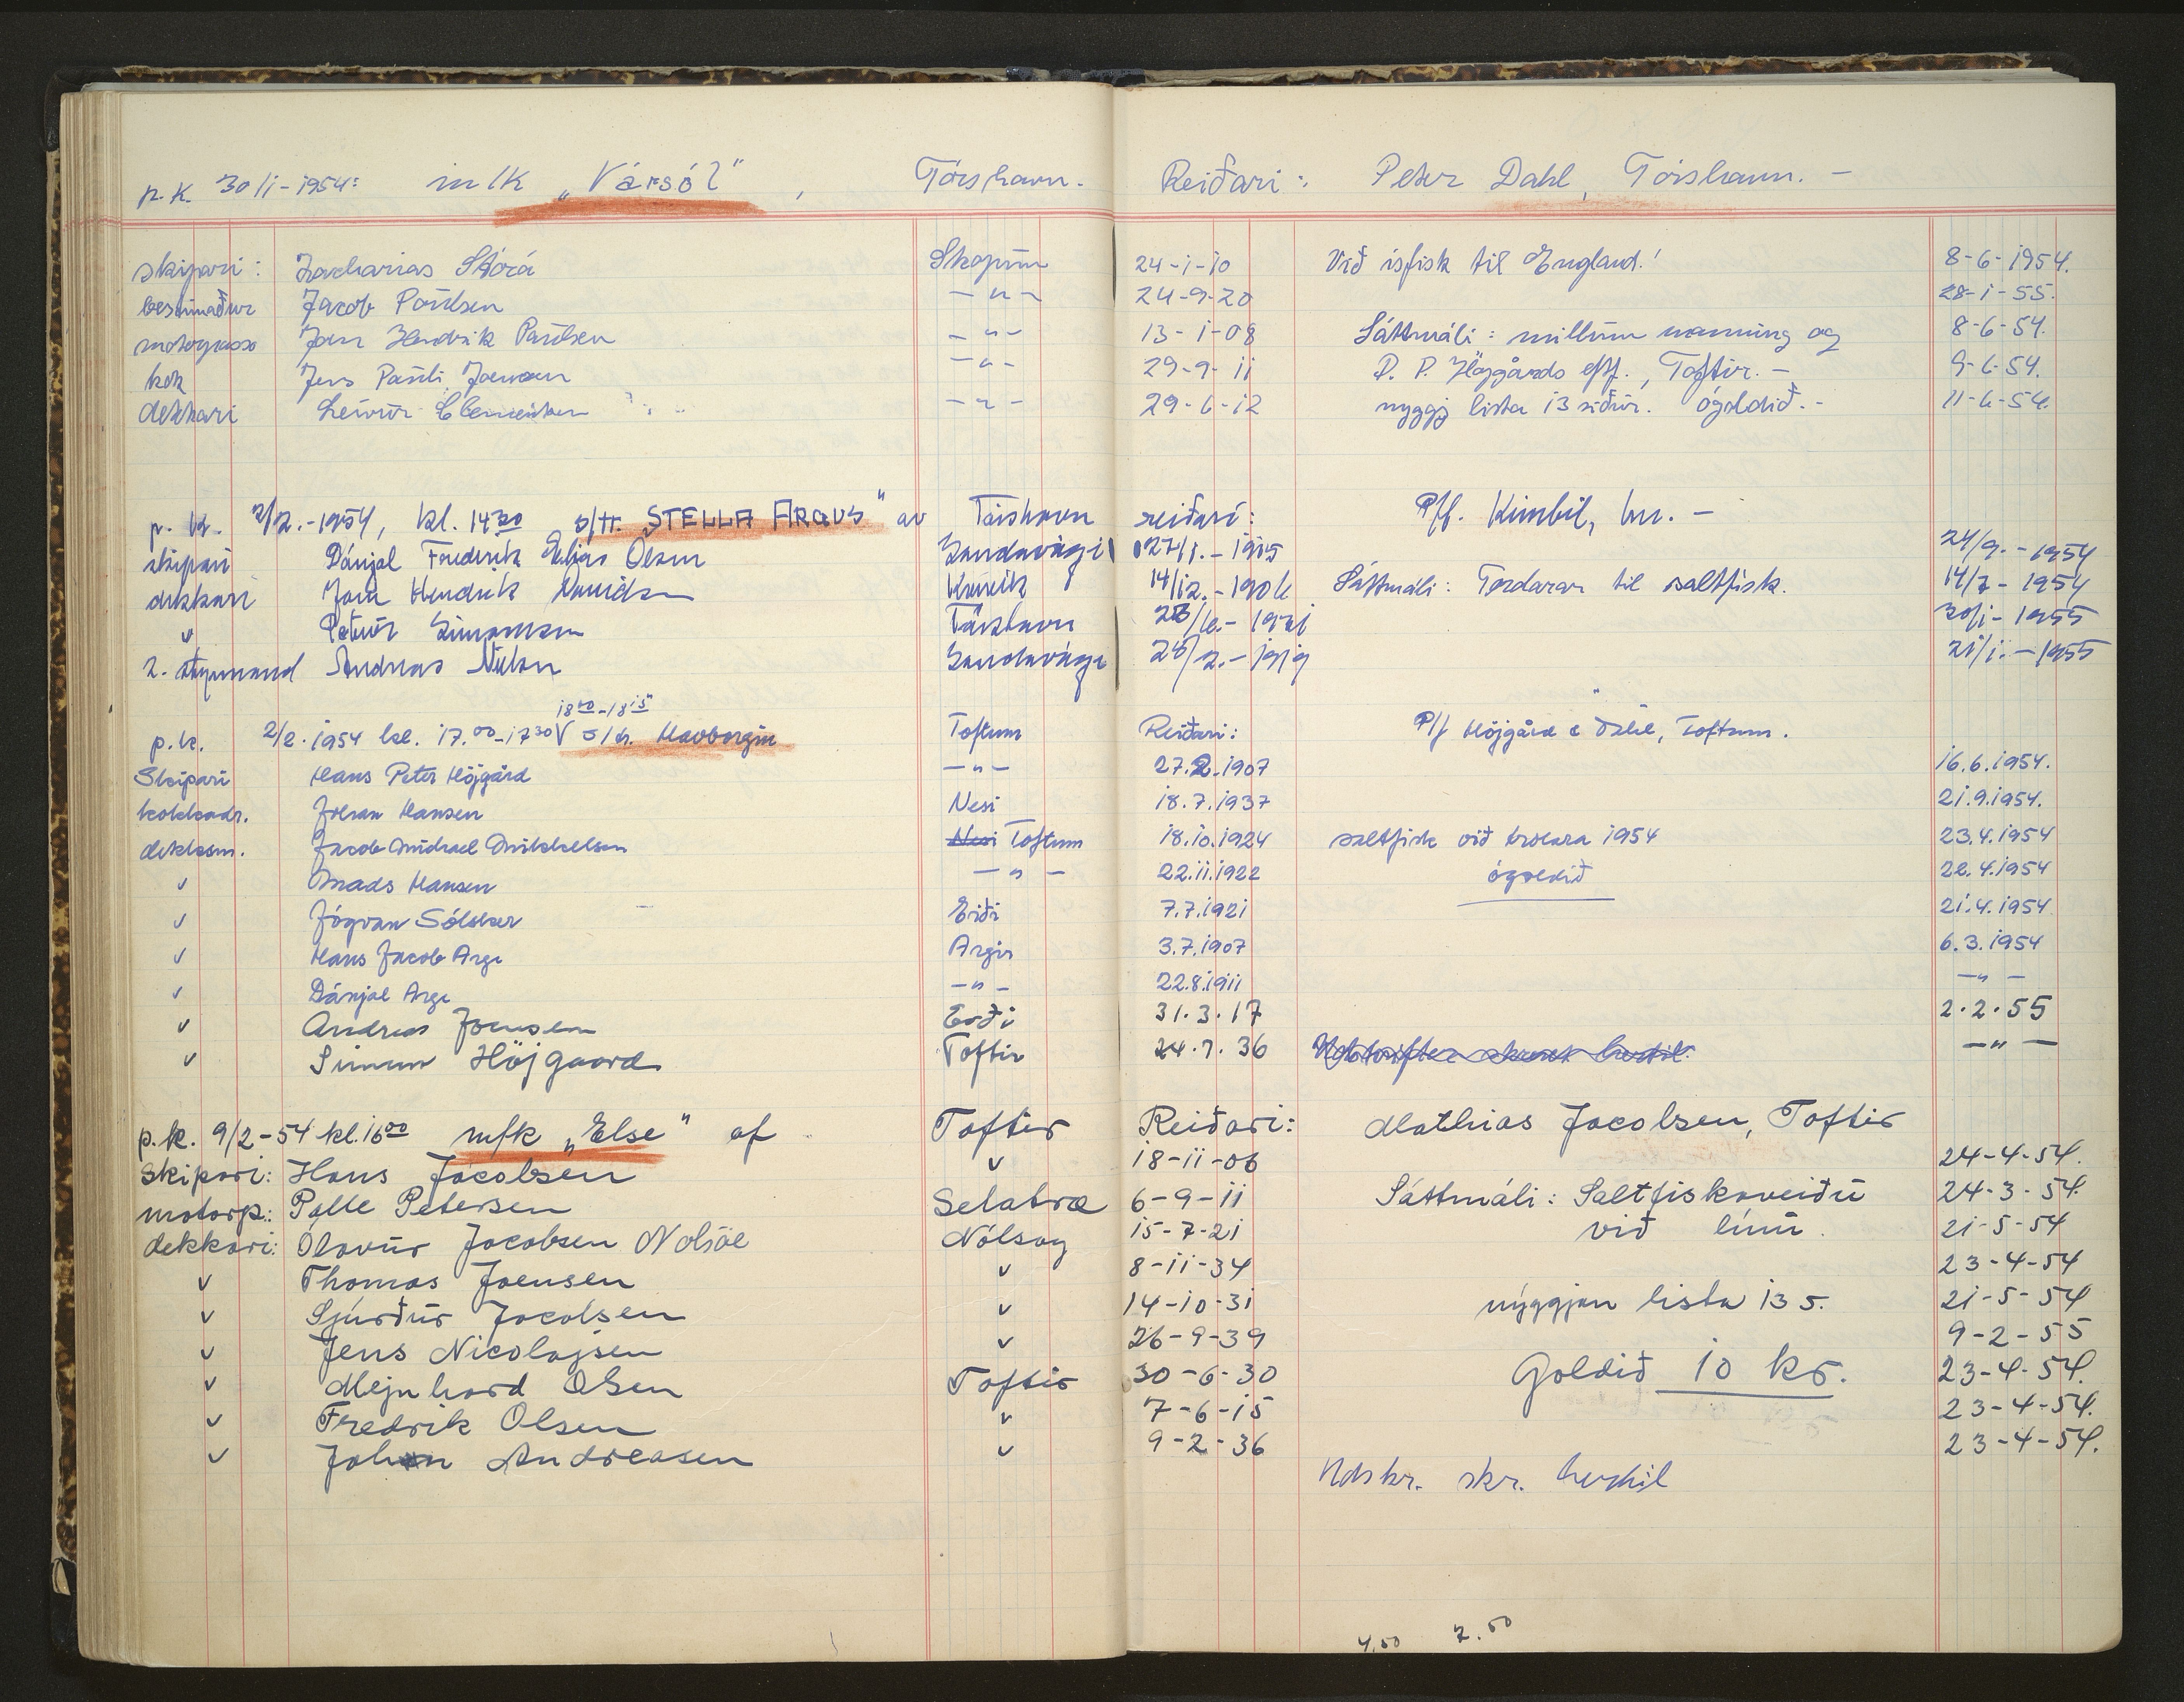 p.k. 30/1-1954: m/k „Vársól“, Tórshavn. Reiðari: Peter Dahl, Tórshavn. -
skipari: Zacharias Stórá Skopun 24-1-10 Við ísfisk til England! 8-6-1954.
bestimaður Jacob Poulsen -"- 24-9-20 28-1-55.
motorpasso Joen Hendrik Poulsen -"- 13-1-08 Sáttmáli: millum manning og 8-6-54.
kok Jens Pauli Joensen -"- 29-9-11 P. P. Höjgårds eftf., Toftir. - 9-6-54.
dekkari Leivur Clementsen -"- 29-6-12 nyggj lista 13 síður. ógoldið. - 11-6-54.
p. k. 2/2.-1954, kl. 14 30 s/tr. „STELLA ARGUS“ av Tórshavn reiðari: P/f. Kimbil, hn. -
skipari Dánjal Fredrik Eljas Olsen Sandavági 27/1.-1905 24/9.-1954
dekkari Joen Hendrik Davidsen Kvívík 14/12.-1906 Sáttmáli: Tordarar til saltfisk. 14/7-1954
v Petur Simonsen Tórshavn 28/6.-1921 30/1-1955
2. stýrmand Andreas Nielsen Sandavági 28/2.-1919 21/1.-1955
18 00-18 15
p.k. 2/2.1954 kl. 17.00-17 30 V s/tr. Havborgin Toftum Reiðari: P/f Höjgård & Dahl, Toftum.
Skipari Hans Peter Höjgård -"- 27.2.1907 16.6.1954.
kokkadr. Johan Hansen Nesi 18.7.1937 21.9.1954.
dekksm. Jacob Michael Mikkelsen Nesi Toftum 18.10.1924 saltfisk við trolara 1954 23.4.1954
v Mads Hansen -"- 22.11.1922 ógoldið 22.4.1954
v Jógvan Sólsker Eiði 7.7.1921 21.4.1954
v Hans Jacob Arge Argir 3.7.1907 6.3.1954
v Dánjal Arge -"- 22.8.1911 -"-
v Andreas Joensen Eiði 31.3.17 2.2.55
v Simun Höjgaard Toftir 24.7.36 -"-
p.k. 9/2-54 kl.16 00 m/k „Else“ af Toftir Reiðari: Mathias Jacobsen, Toftir
skipari: Hans Jacobsen v 18-11-06 24-4-54.
motorp.: Palle Petersen Selatræ 6-9-11 Sáttmáli: Saltfiskaveiðu 24-3-54.
dekkari: Olavur Jacobsen Nolsöe Nólsoy 15-7-21 við línu. 21-5-54
v Thomas Joensen v 8-11-34 23-4-54
v Sjúrður Jacobsen v 14-10-31 nýggjan lista 13 s. 21-5-54
v Jens Nicolajsen v 26-9-39 9-2-55
v Mejnhard Olsen Toftir 30-6-30 Goldið 10 kr. 23-4-54.
v Fredrik Olsen v 7-6-15 23-4-54.
v Johan Andreasen v 9-2-36 23-4-54.
Udskr. skr. hertil
4.50 2.50